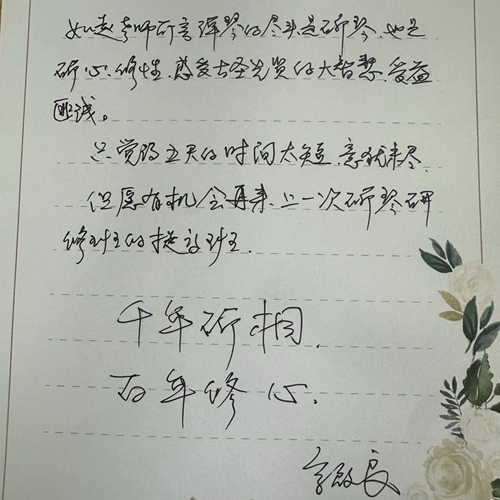 如赵老师所言弹琴的尽头是斫琴，也是
斫心、修性，感受古圣先贤的大智慧，受益
匪浅。
只觉得五天的时间太短，意犹未尽，
但愿有机会再来上一次斫琴研
修班的提高班。
千年斫桐，
百年修心。